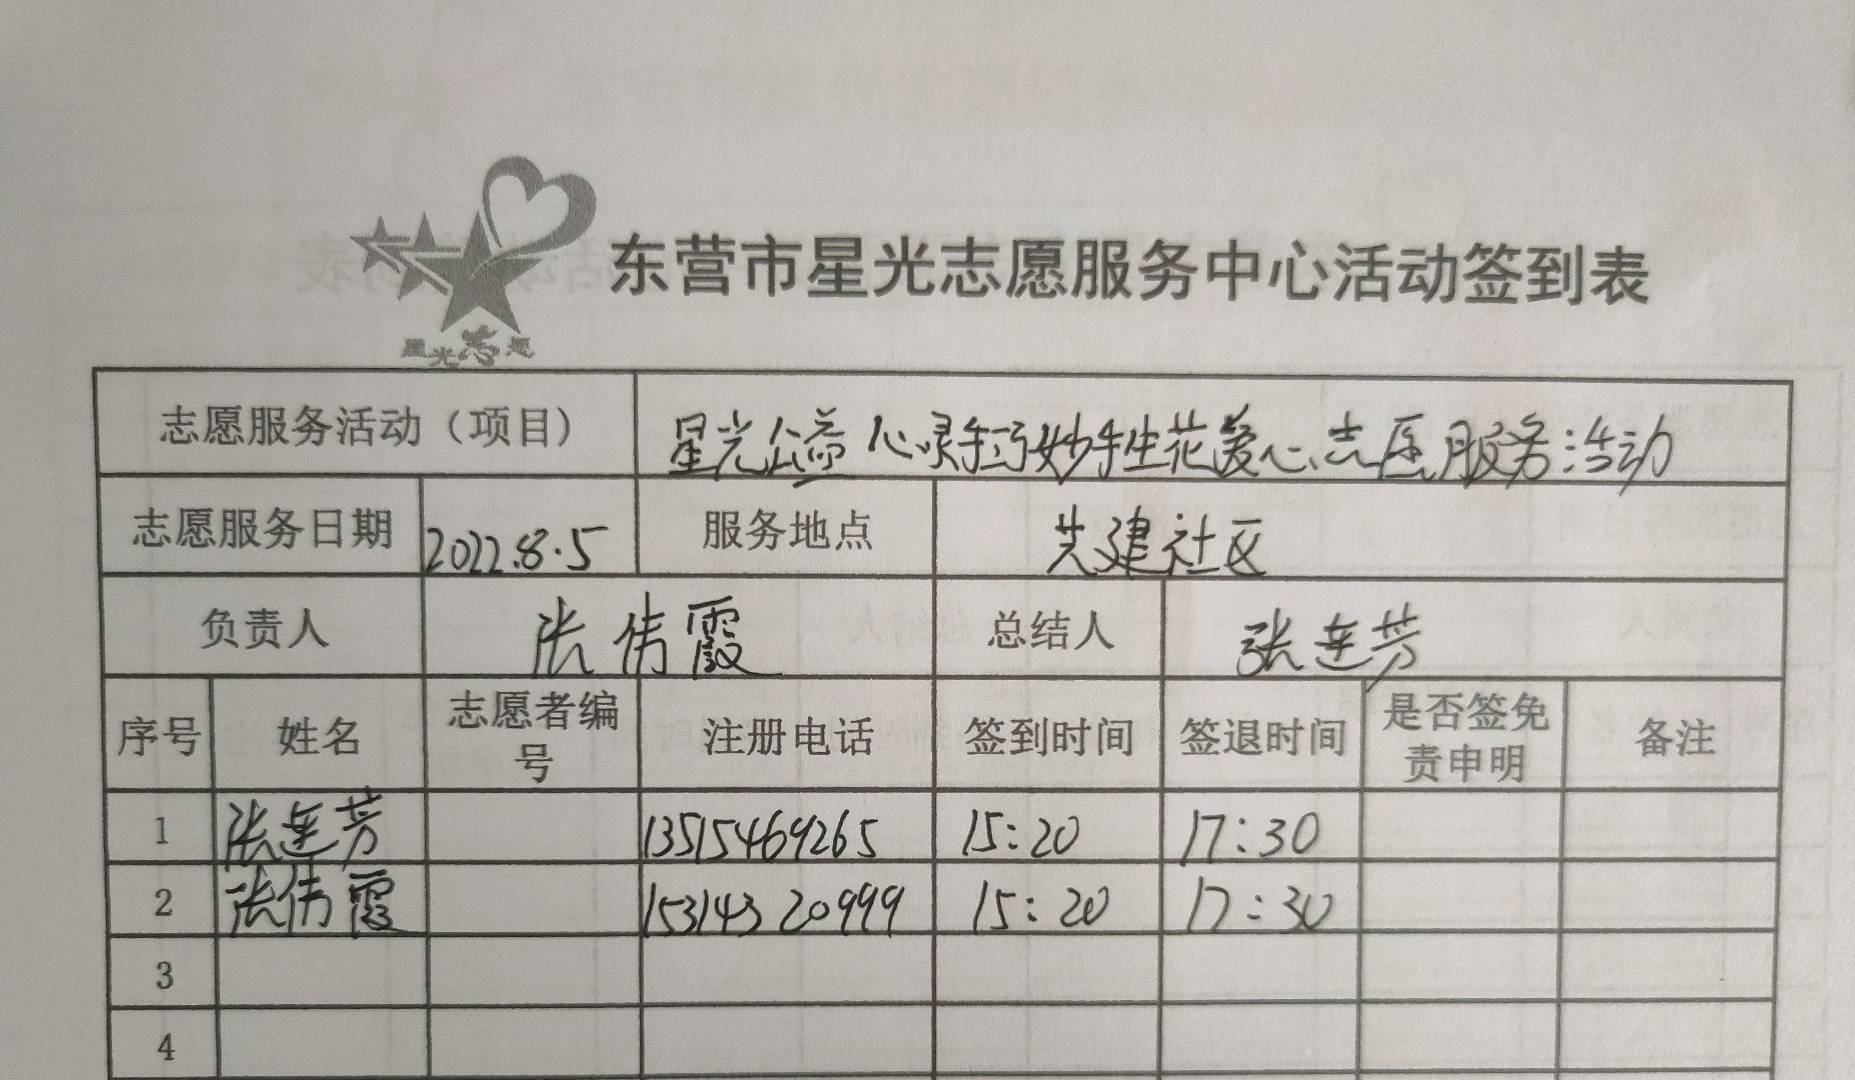 星光志愿
东营市星光志愿服务中心活动签到表
志愿服务活动（项目） 星光公益心灵手巧妙手生花爱心志愿服务活动
志愿服务日期 2022.8.5 服务地点 先建社区
负责人 张伟霞 总结人 张莲芳
序号 姓名 志愿者编号 注册电话 签到时间 签退时间 是否签免责申明 备注
1 张莲芳 13515469265 15:20 17:30
2 张伟霞 15314320999 15:20 17:30
3
4